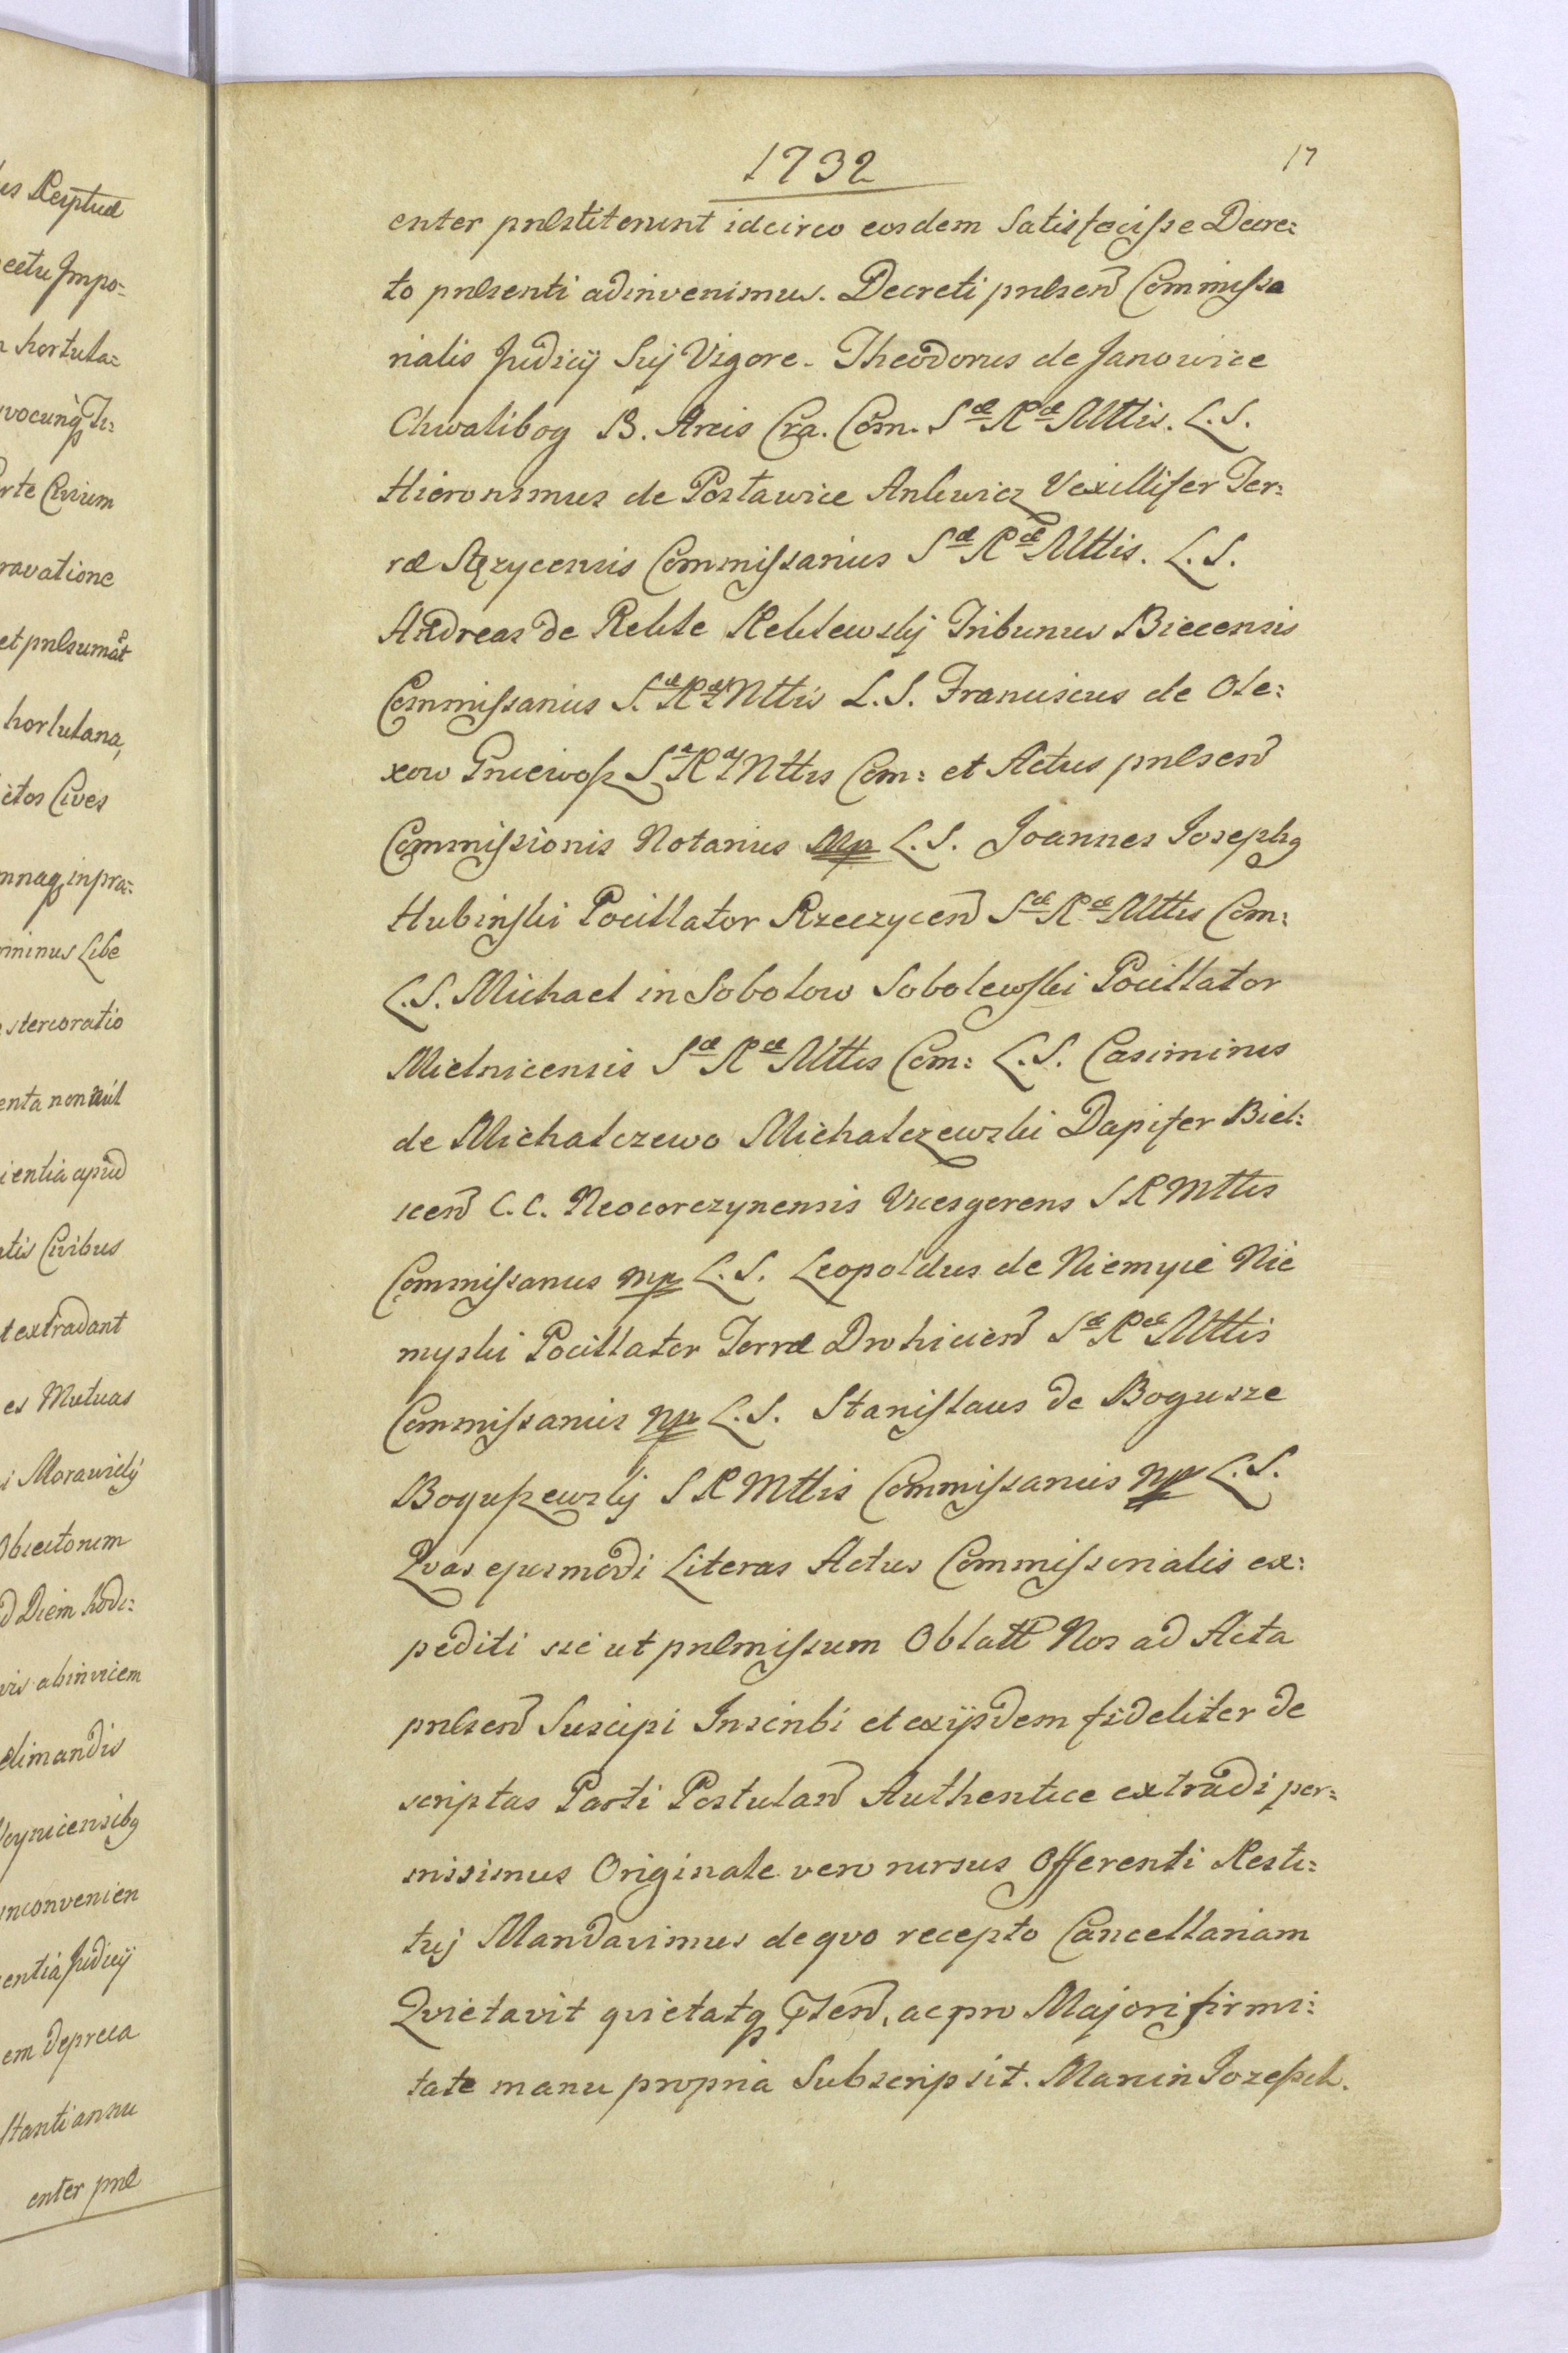 us Perptuæ
ectu Impo=
hortula=
vocunq Tr=
rte Civium
ravatione
et pnlsumat
hortulana,
ictos Cives
mnaq inpra=
minus Libe
stercoratio
enta non nul
ientia apud
tis Civibus
t extradant
es Mutuas
i Morawickij
Obiectorum
d Diem hodi=
vis abinvicem
elimandis
oynicensibq
inconvenien
entia Judicij
em depreca
stanti annu
enter pnl
1732
17
enter pnlstiterunt idcirco eosdem Satisfecisse Decre=
to pnlsenti adinvenimus. Decreti pnlsen Commissa
rialis Judicij Suj Vigore. Theodorus de Janowice
Chwalibog B. Arcis Cra. Com. Sæ Ræ Mttis. L. S.
Hieronimus de Postawice Ankwicz Vexillifer Ter=
ræ Stęzycensis Commissarius Sæ Ræ Mttis. L. S.
Andreas de Reklе Reklewskij Tribunus Biecensis
Commissarius Sæ Ræ Mttis L. S. Franciscus de Ole=
xow Gniewosz Sæ Ræ Mttis Com: et Actus pnlsen
Commissionis Notarius Mp L. S. Joannes Josephq
Hubinski Pocillator Rzeczycen Sæ Ræ Mttis Com:
L. S. Michael in Sobolow Sobolewski Pocillator
Mielnicensis Sæ Ræ Mttis Com: L. S. Casimirus
de Michalczewo Michalczewski Dapifer Biel=
scen C. C. Neocorczynensis Vicesgerens S R Mttis
Commissarius mp L. S. Leopoldus de Niemyie Nie
myski Pocillator Terræ Drohicien Sæ Ræ Mttis
Commissarius mp L. S. Stanislaus de Bogusze
Boguszewskij S R Mttis Commissarius mp L. S.
Qvas ejusmodi Literas Actus Commissorialis ex=
pediti sic ut pnlmissum Oblatt Nos ad Acta
pnlsen Suscipi Inscribi et exijsdem fideliter de
scriptas Parti Postulan Authentice extradi per=
misimus Originale vero rursus Offerenti Resti=
tuj Mandavimus de qvo recepto Cancellariam
Qvietavit qvietatq, ac pro Majori firmi=
tate manu propria Subscripsit. Marcin Jozeph.